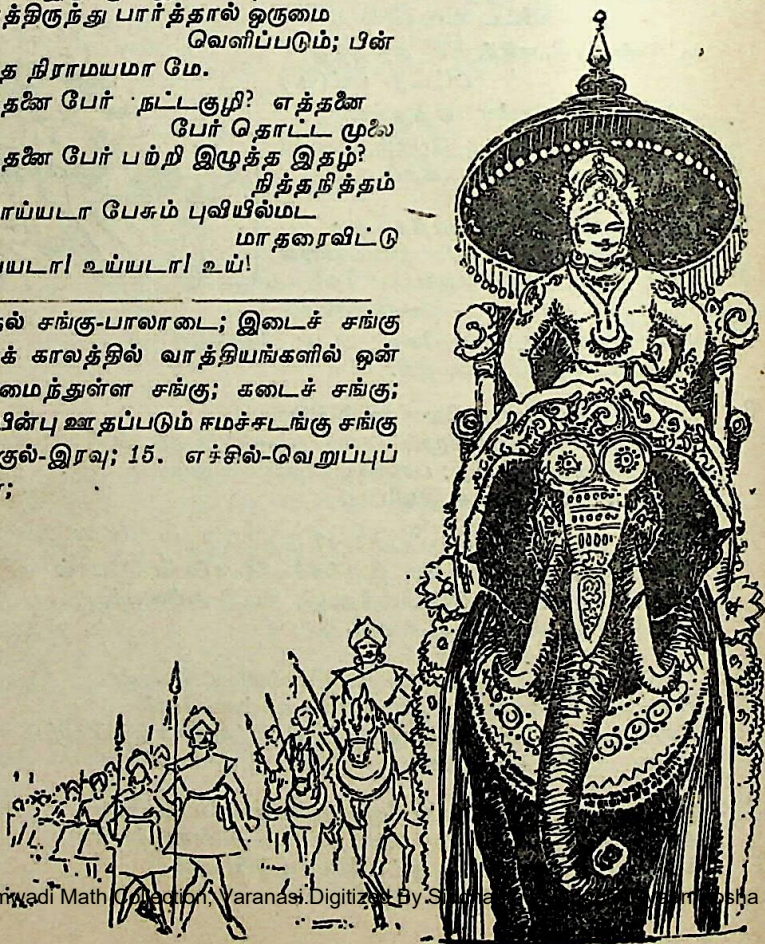 த்திருந்து பார்த்தால் ஒருமை
வெளிப்படும்; பின்
த நிராமயமா மே.
தனை பேர் நட்டகுழி? எத்தனை
பேர் தொட்ட முலை
தனை பேர் பற்றி இழுத்த இதழ்?
நித்தநித்தம்
ாய்யடா பேசும் புவியில்மட
மாதரைவிட்டு
ய்யடா! உய்யடா! உய்!
தல் சங்கு-பாலாடை; இடைச் சங்கு
க் காலத்தில் வாத்தியங்களில் ஒன்
மைந்துள்ள சங்கு; கடைச் சங்கு;
பின்பு ஊதப்படும் ஈமச்சடங்கு சங்கு
குல்-இரவு; 15. எச்சில்-வெறுப்புப்
;
mwadi Math Collection, Varanasi.Digitized By